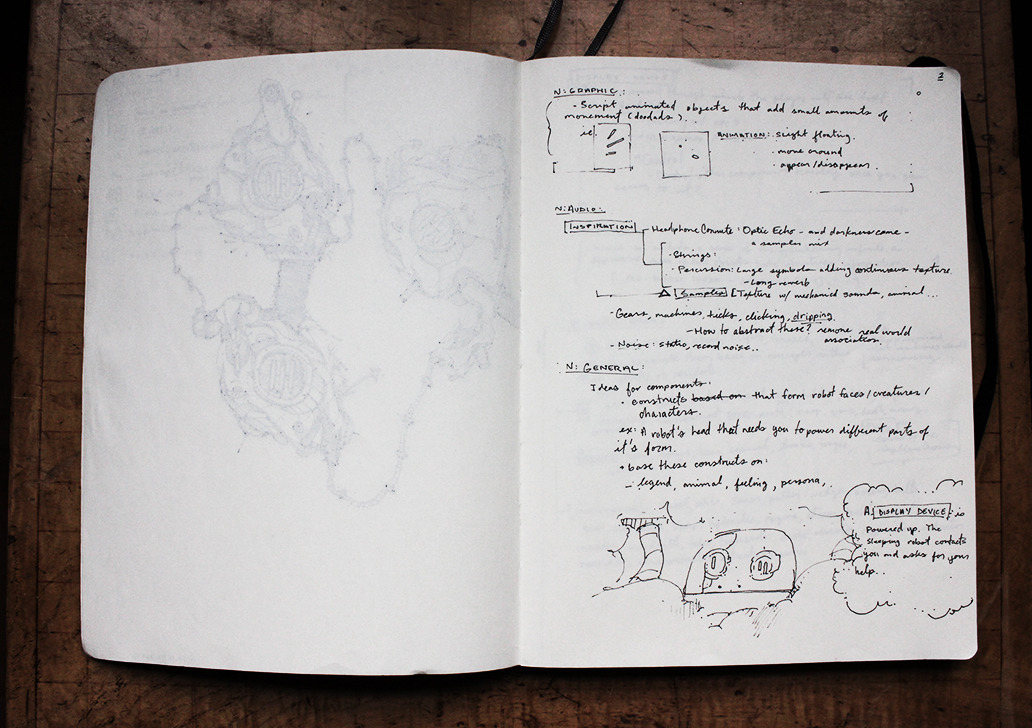 2
N: GRAPHIC:
- Script, animated objects that add small amounts of
movement (doodads).
ie.
ANIMATION: Slight floating.
· move around
· appear/disappear
N: AUDIO:
INSPIRATION
Headphone Commute: Optic Echo - and darkness came -
a sampler mix
· Strings:
· Percussion: Large symbols adding continuous texture.
- Long reverb
Samples [Texture w/ mechanical sounds, animal...
- Gears, machines, ticks, clicking, dripping.
- How to abstract these? remove real world
association.
- Noise: static, record noise..
N: GENERAL:
Ideas for components:
· constructs based on that form robot faces/creatures/
characters.
ex: A robot's head that needs you to power different parts of
it's form.
· base these constructs on:
- legend, animal, feeling, persona,
A DISPLAY DEVICE is
Powered up. The
sleeping robot contacts
you and asks for your
help..